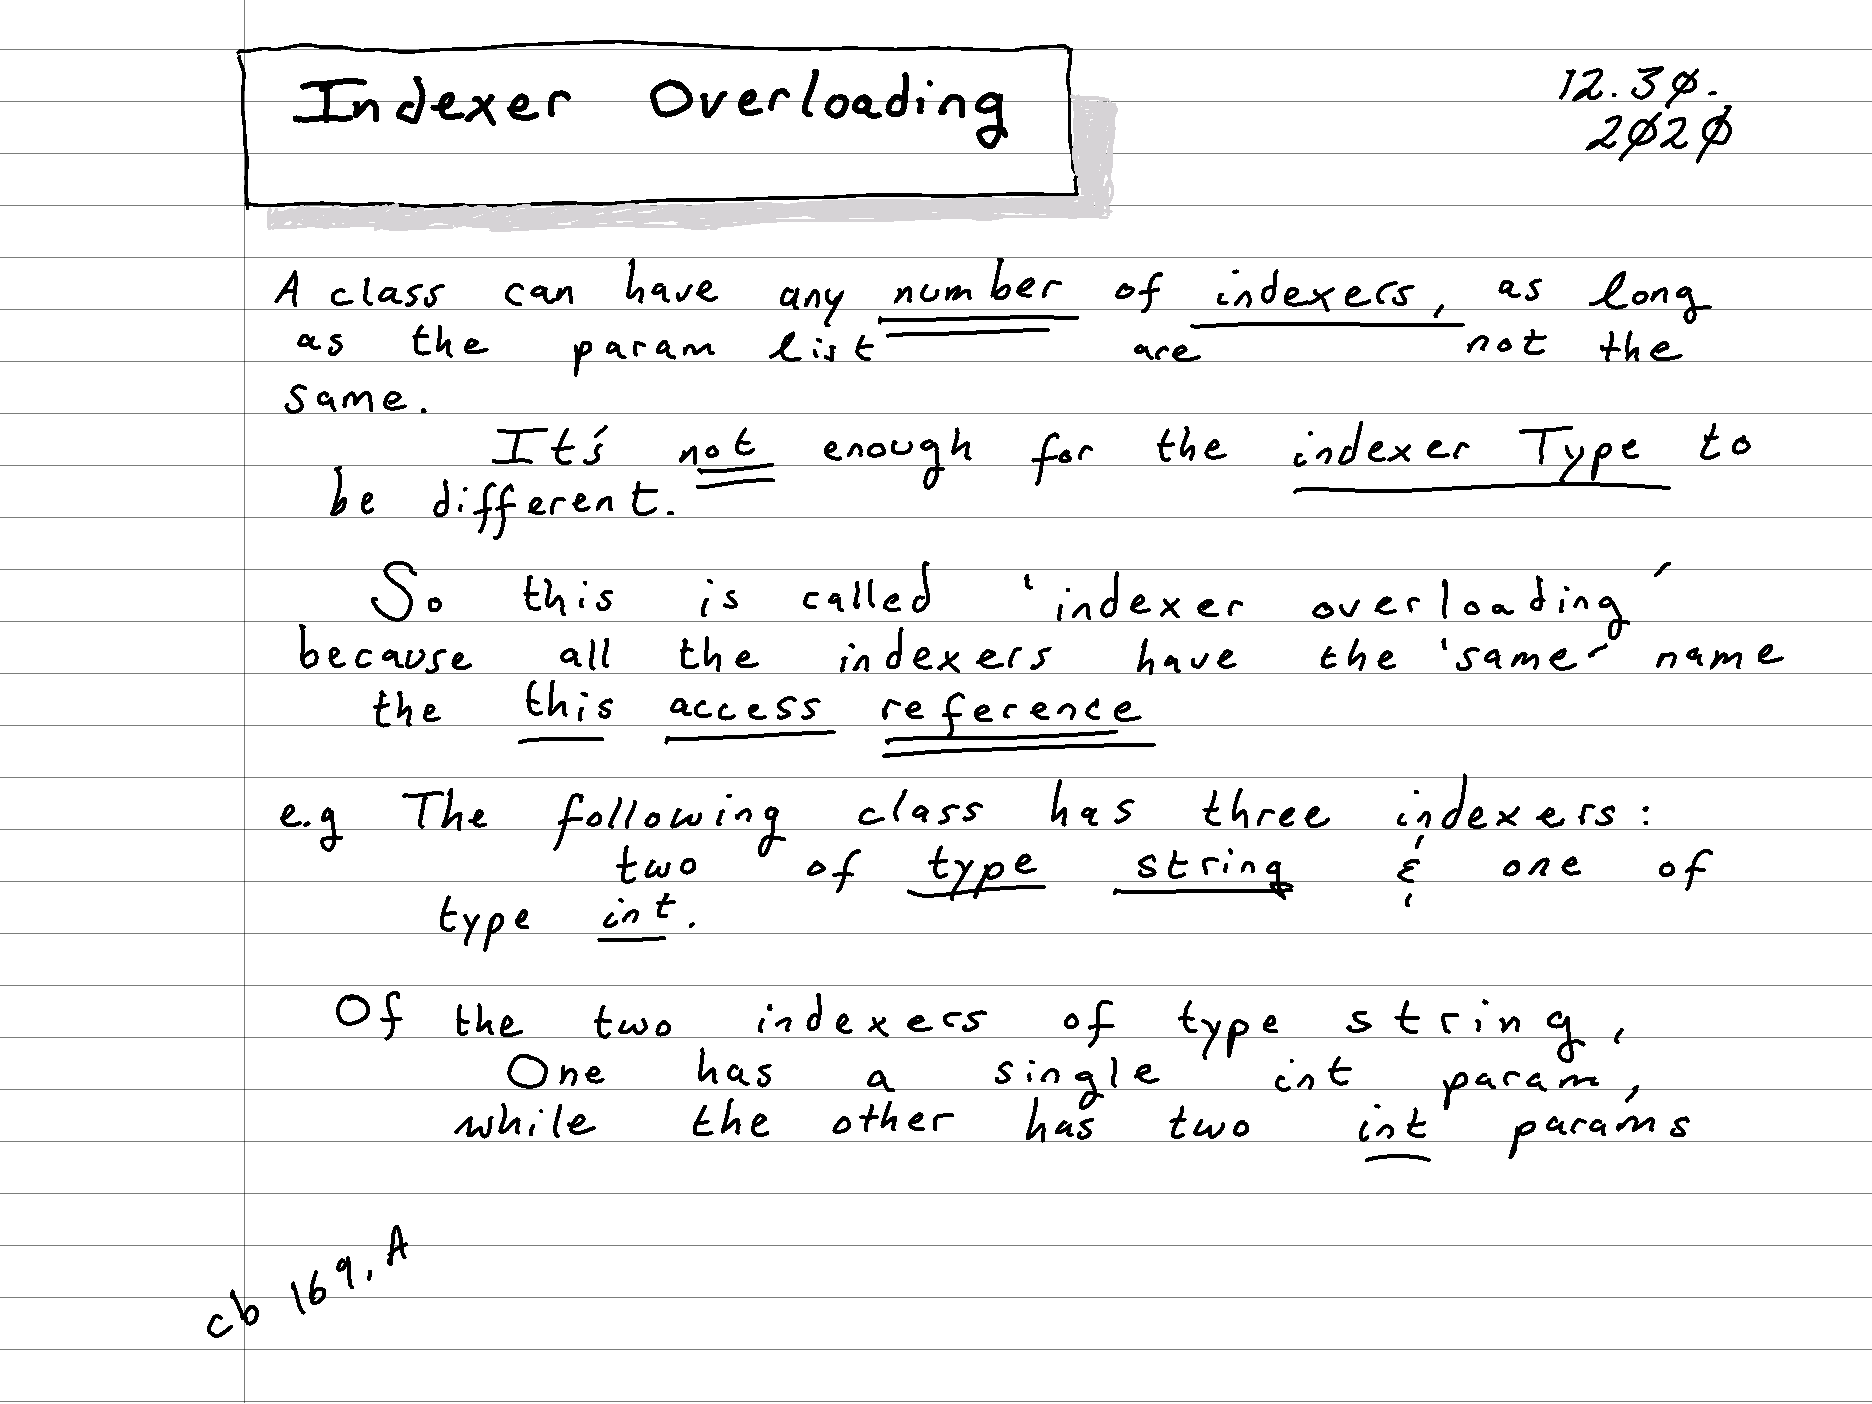 Indexer Overloading
12.30.
2020
A class can have any number of indexers, as long
as the param list are not the
same.
It's not enough for the indexer Type to
be different.
So this is called 'indexer overloading'
because all the indexers have the 'same' name
the this access reference
e.g The following class has three indexers:
two of type string & one of
type int.
Of the two indexers of type string,
One has a single int param,
while the other has two int params
cb 169, A